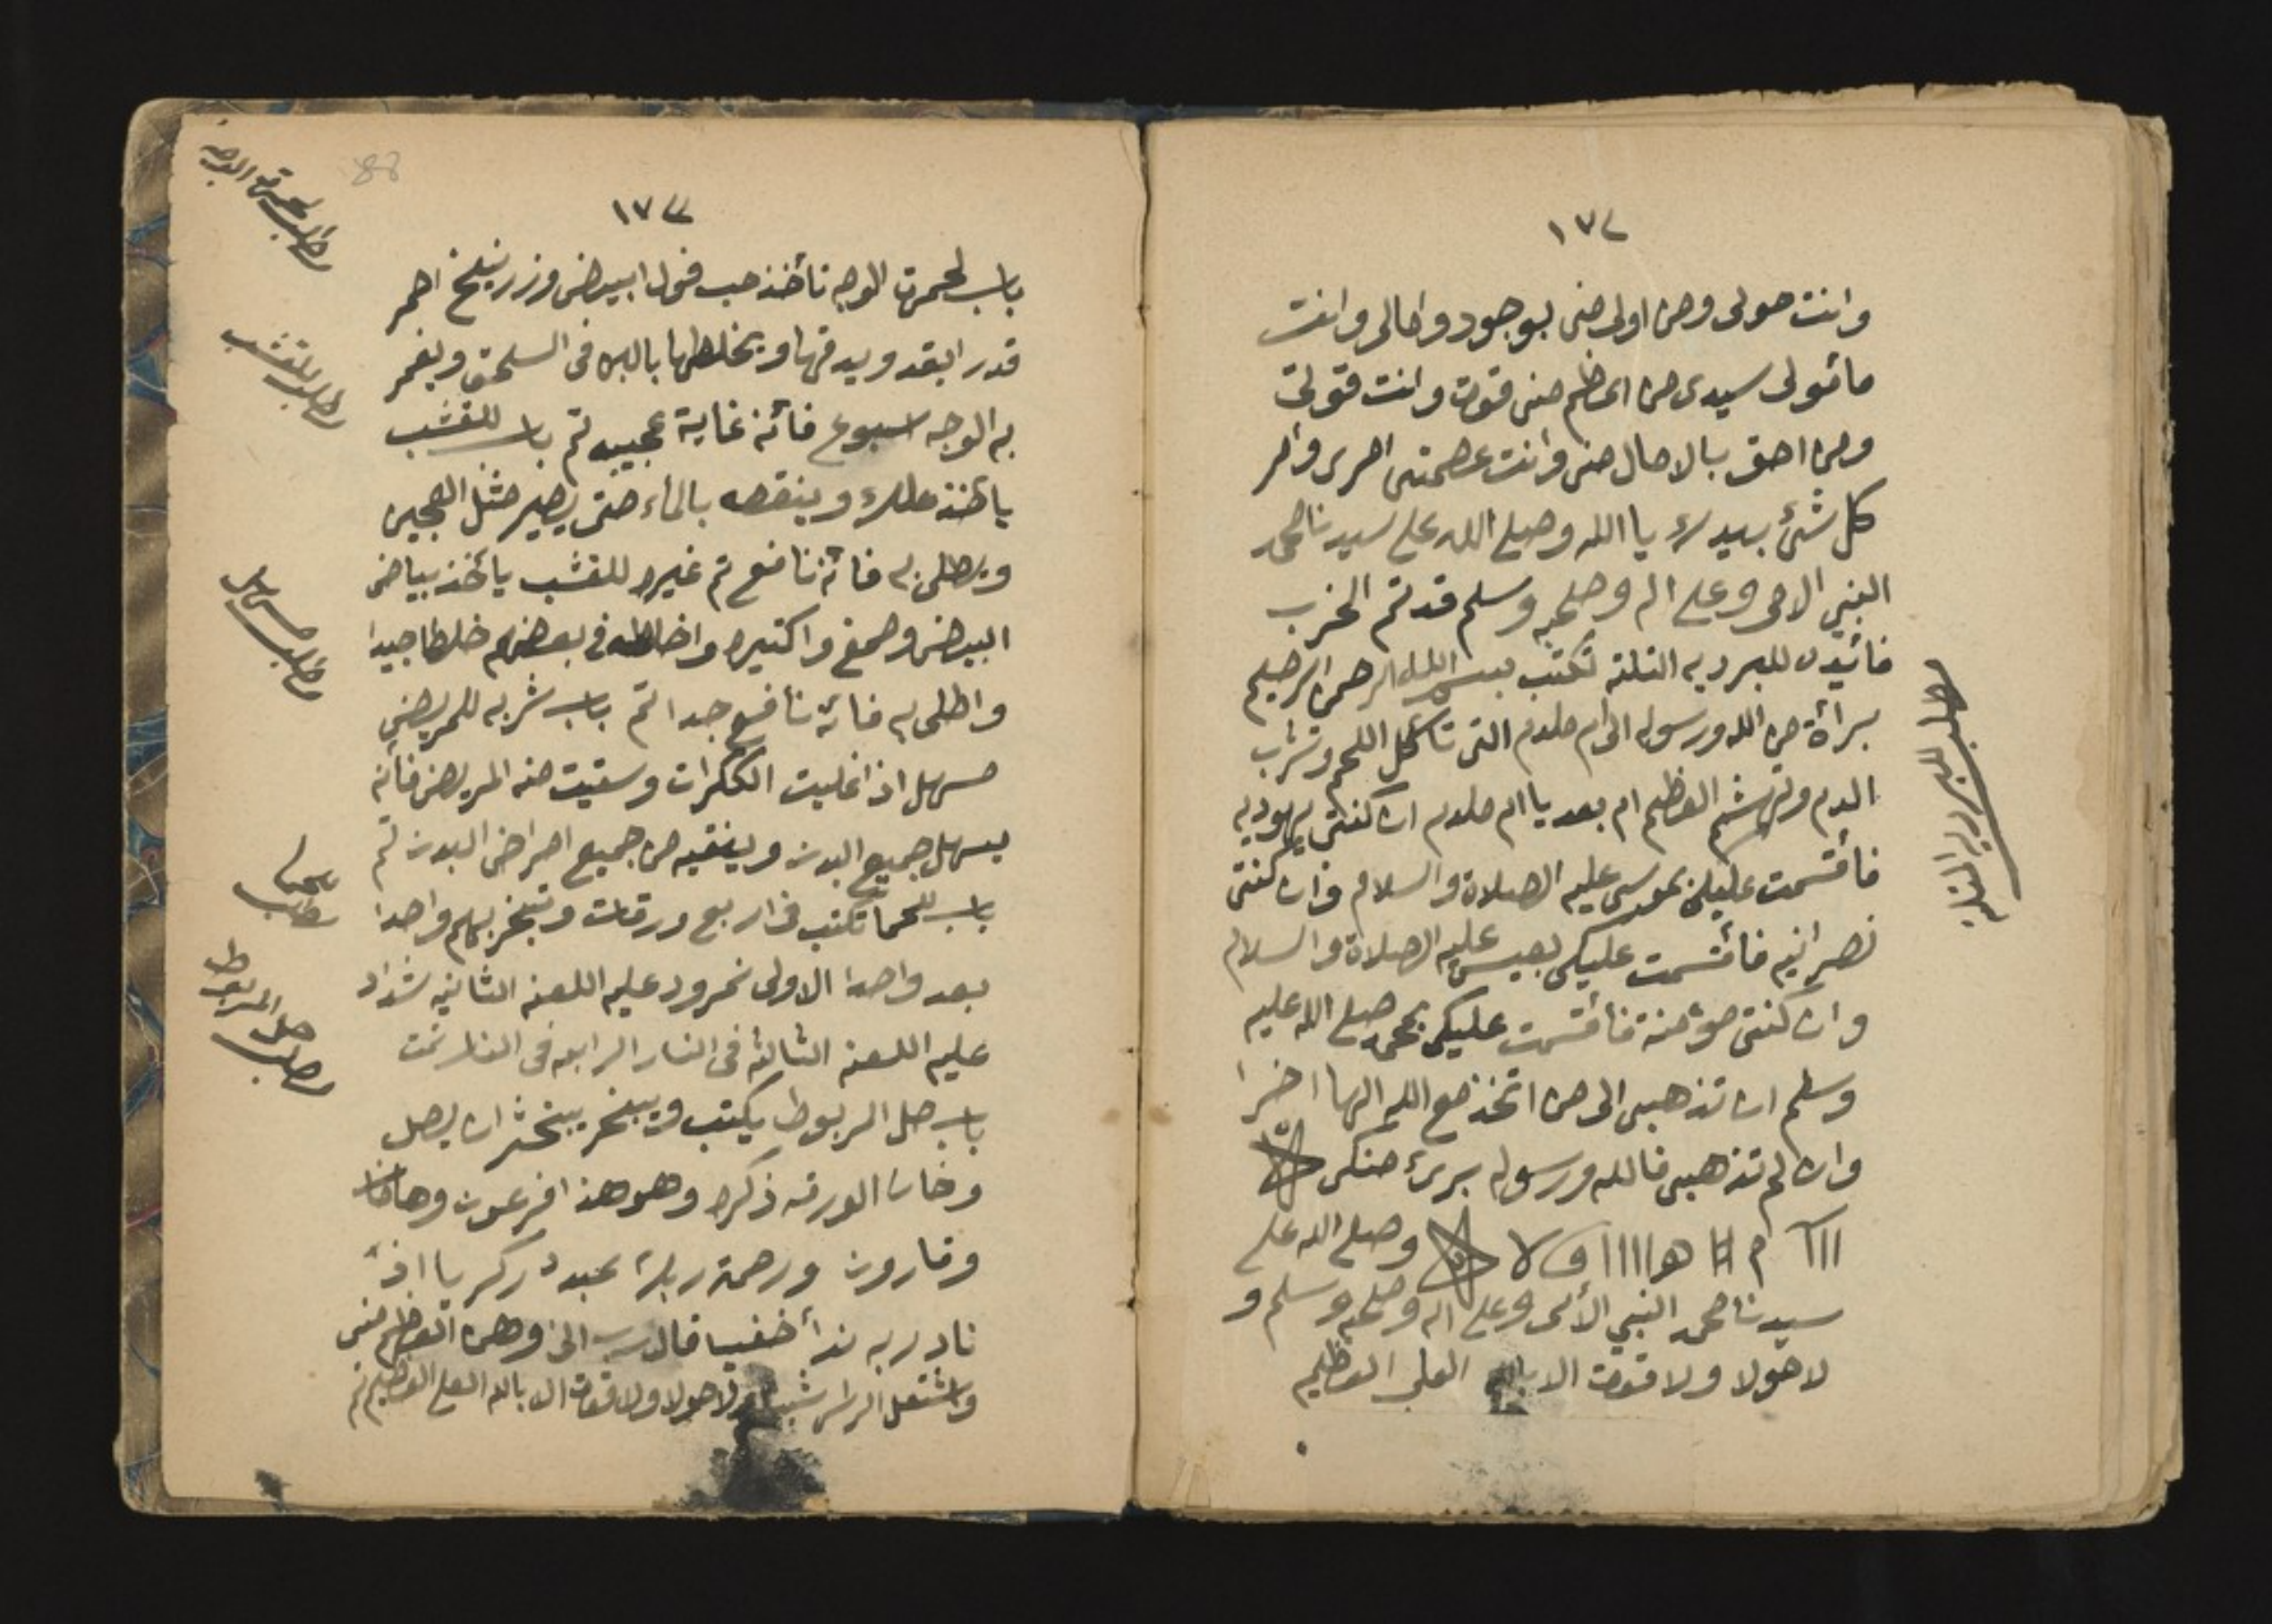 ١٧٢
وانت مولى ومن اولى منى بوجود واما لى وانت
مائمولى سيدى من اعظم منى قوت وانت قولتى
ومن احق بالامال منى وانت عصمتى امرى وامر
كل شئ بيدك يا الله وصلى الله على سيدنا محمد
النبي الامى وعلى اله وصحبه وسلم قد تم الحزب
فائيده للبرديه التلته تكتب بسم الله الرحمن الرحيم
برأة من الله ورسوله الى ام ملدم التى تاكل اللحم وتشرب
الدم وتهشم العظم ام بعد يا ام ملدم ان كنتى يهوديه
فأقسمت عليكى بموسى عليه الصلاة والسلام وان كنتى
نصرانيه فأقسمت عليكى بعيسى عليه الصلاة والسلام
وان كنتى مؤمنة فأقسمت عليكى بمحمد صلى الله عليه
وسلم ان تذهبى الى من اتخذ مع الله الها اخرا
وان لم تذهبى فالله ورسوله برئ منكى
وصلى الله على
سيدنا محمد النبي الأمى وعلى اله وصحبه وسلم و
لاحولا ولا قوت الا بالله العلى العظيم
مطلب للبرديه التلته
١٧٣
88
باب لحمرت الوجه تأخذ حب فول ابيض وزرنيخ احمر
قدر ابقد ويدقها ويخلطها بالبن فى السلحق ويغمر
به الوجه اسبوع فائنه غاية عجيبه تم باب للقشب
يأخذ علك وينقعه بالماء حتى يصير مثل العجين
ويطلى به فائنه نافع تم غيره للقشب يأخذ بياض
البيض وصمغ واكتيره واخلطه فى بعضهم خلطا جيدا
واطلى به فائنه نافع جدا تم باب شربه للمريض
مسهل اذا غليت الككرات وسقيت منه المريض فأنه
يسهل جميع البدن وينقيه من جميع امراض البدن تم
باب للحما تكتب فى اربع ورقات وتبخر بهم واحدا
بعد واحدا الاولى نمرود عليه اللعنه الثانيه شداد
عليه اللعنه الثالثه فى النار الرابعه فى النار تمت
باب حل المربوط يكتب ويبخر يبخش ان يصل
وخان الورقه ذكره وهو هذا فرعون وهامان
وقارون ورحمة ربك عبده زكريا اذ
نادى ربه ندأ خفيا قال رب انى وهن العظم منى
واشتعل الراس شيبا ولاحولا ولا قوت الا بالله العلى العظيم تم
مطلب لحمرة الوجه
مطلب للقشب
مطلب مسهل
مطلب للحما
مطلب حل المربوط